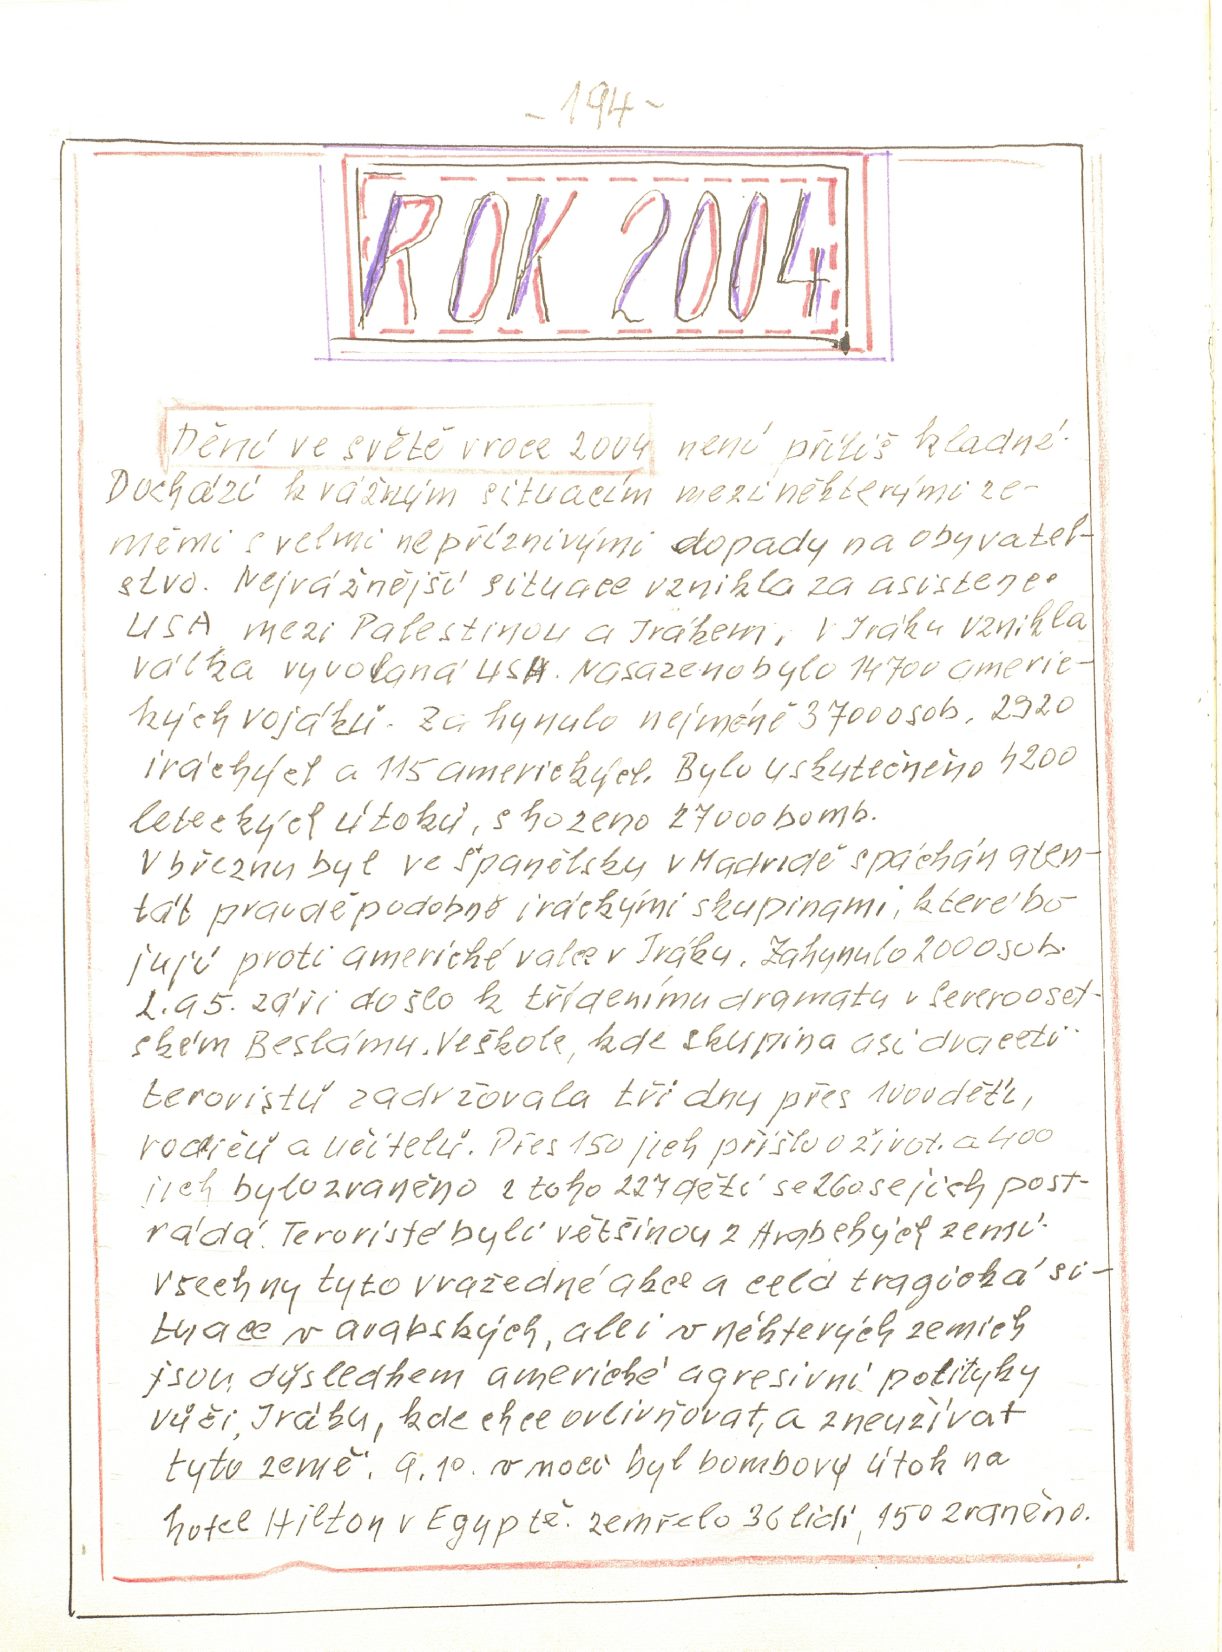 - 194 -
ROK 2004
Dění ve světě v roce 2004 není příliš kladné.
Dochází k vážným situacím mezi některými ze-
měmi s velmi nepříznivými dopady na obyvatel-
stvo. Nejvážnější situace vznikla za asistence
USA mezi Palestinou a Irákem, V Iráku vznikla
válka vyvolaná USA. Nasazeno bylo 14700 americ-
kých vojáků. Zahynulo nejméně 37000 osob, 2920
iráckých a 115 amerických. Bylo uskutečněno 4200
leteckých útoků, shozeno 27000 bomb.
V březnu byl ve Španělsku v Madridě spáchán aten-
tát pravděpodobně iráckými skupinami, které bo
jují proti americké válce v Iráku. Zahynulo 2000 osob.
2. a 5. září došlo k třídenímu dramatu v Severooset-
ském Beslámu. Ve škole, kde skupina asi dvaceti
teroristů zadržovala tři dny přes 1000 dětí,
rodičů a učitelů. Přes 150 jich přišlo o život. a 400
jich bylo zraněno z toho 227 dětí se 260 se jich post-
rádá. Teroristé byli většinou z Arabských zemí.
Všechny tyto vražedné akce a celá tragická si-
tuace v arabských, ale i v některých zemích
jsou důsledkem americké agresivní polityky
vůči, Iráku, kde chce ovlivňovat, a zneužívat
tyto země. 9.10. v noci byl bombový útok na
hotel Hilton v Egyptě. zemřelo 36 lidi, 150 zraněno.